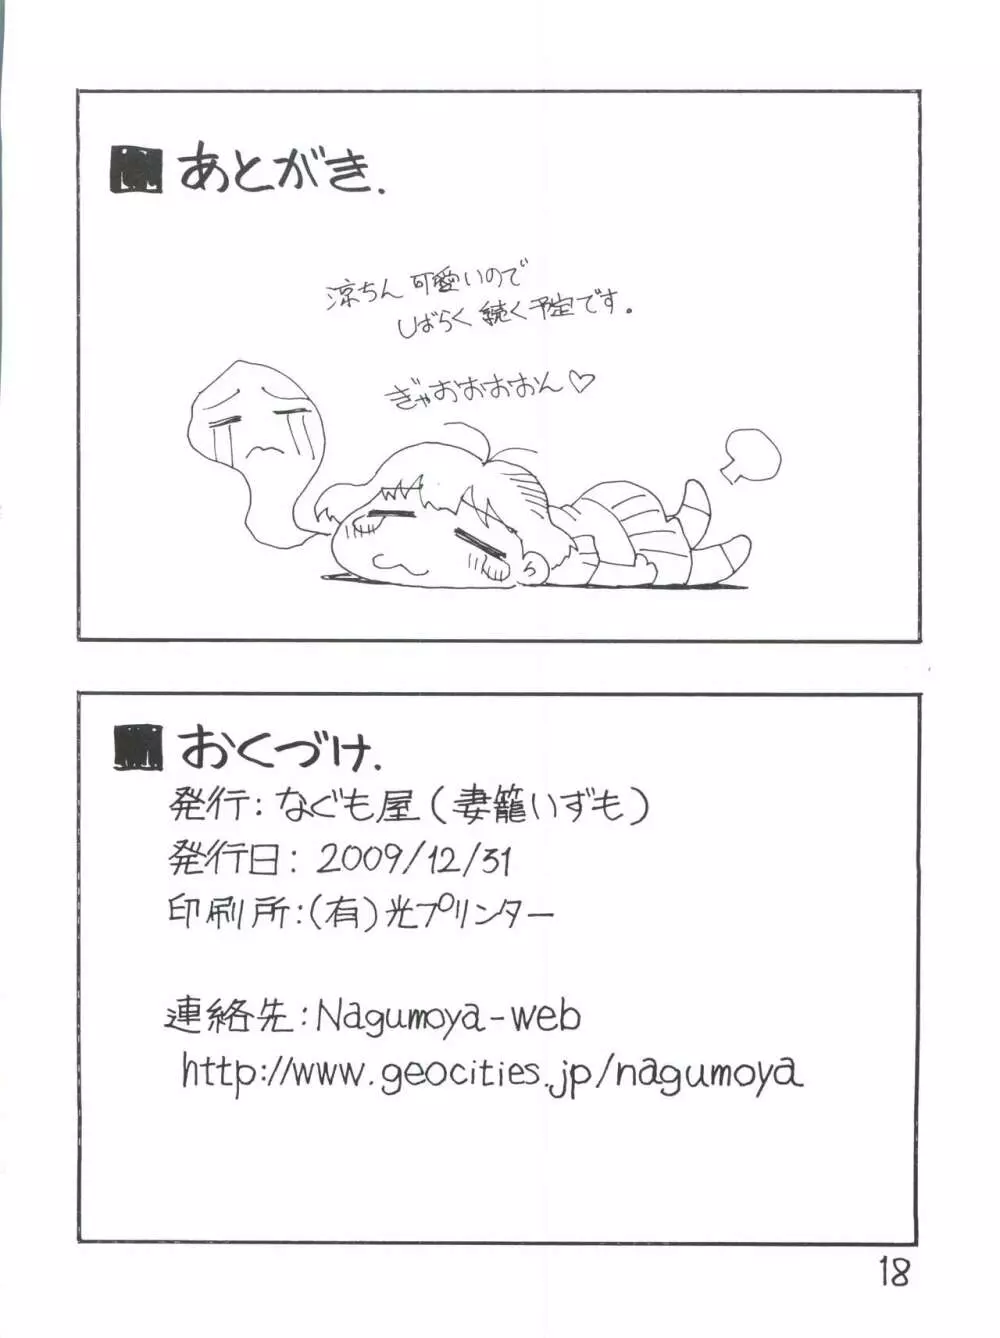 ■あとがき.
涼ちん可愛いので
しばらく続く予定です。
ぎゃおおおおん♡
■おくづけ.
発行:なぐも屋(妻籠いずも)
発行日: 2009/12/31
印刷所:(有)光プリンター
連絡先:Nagumoya-web
http://www.geocities.jp/nagumoya
18